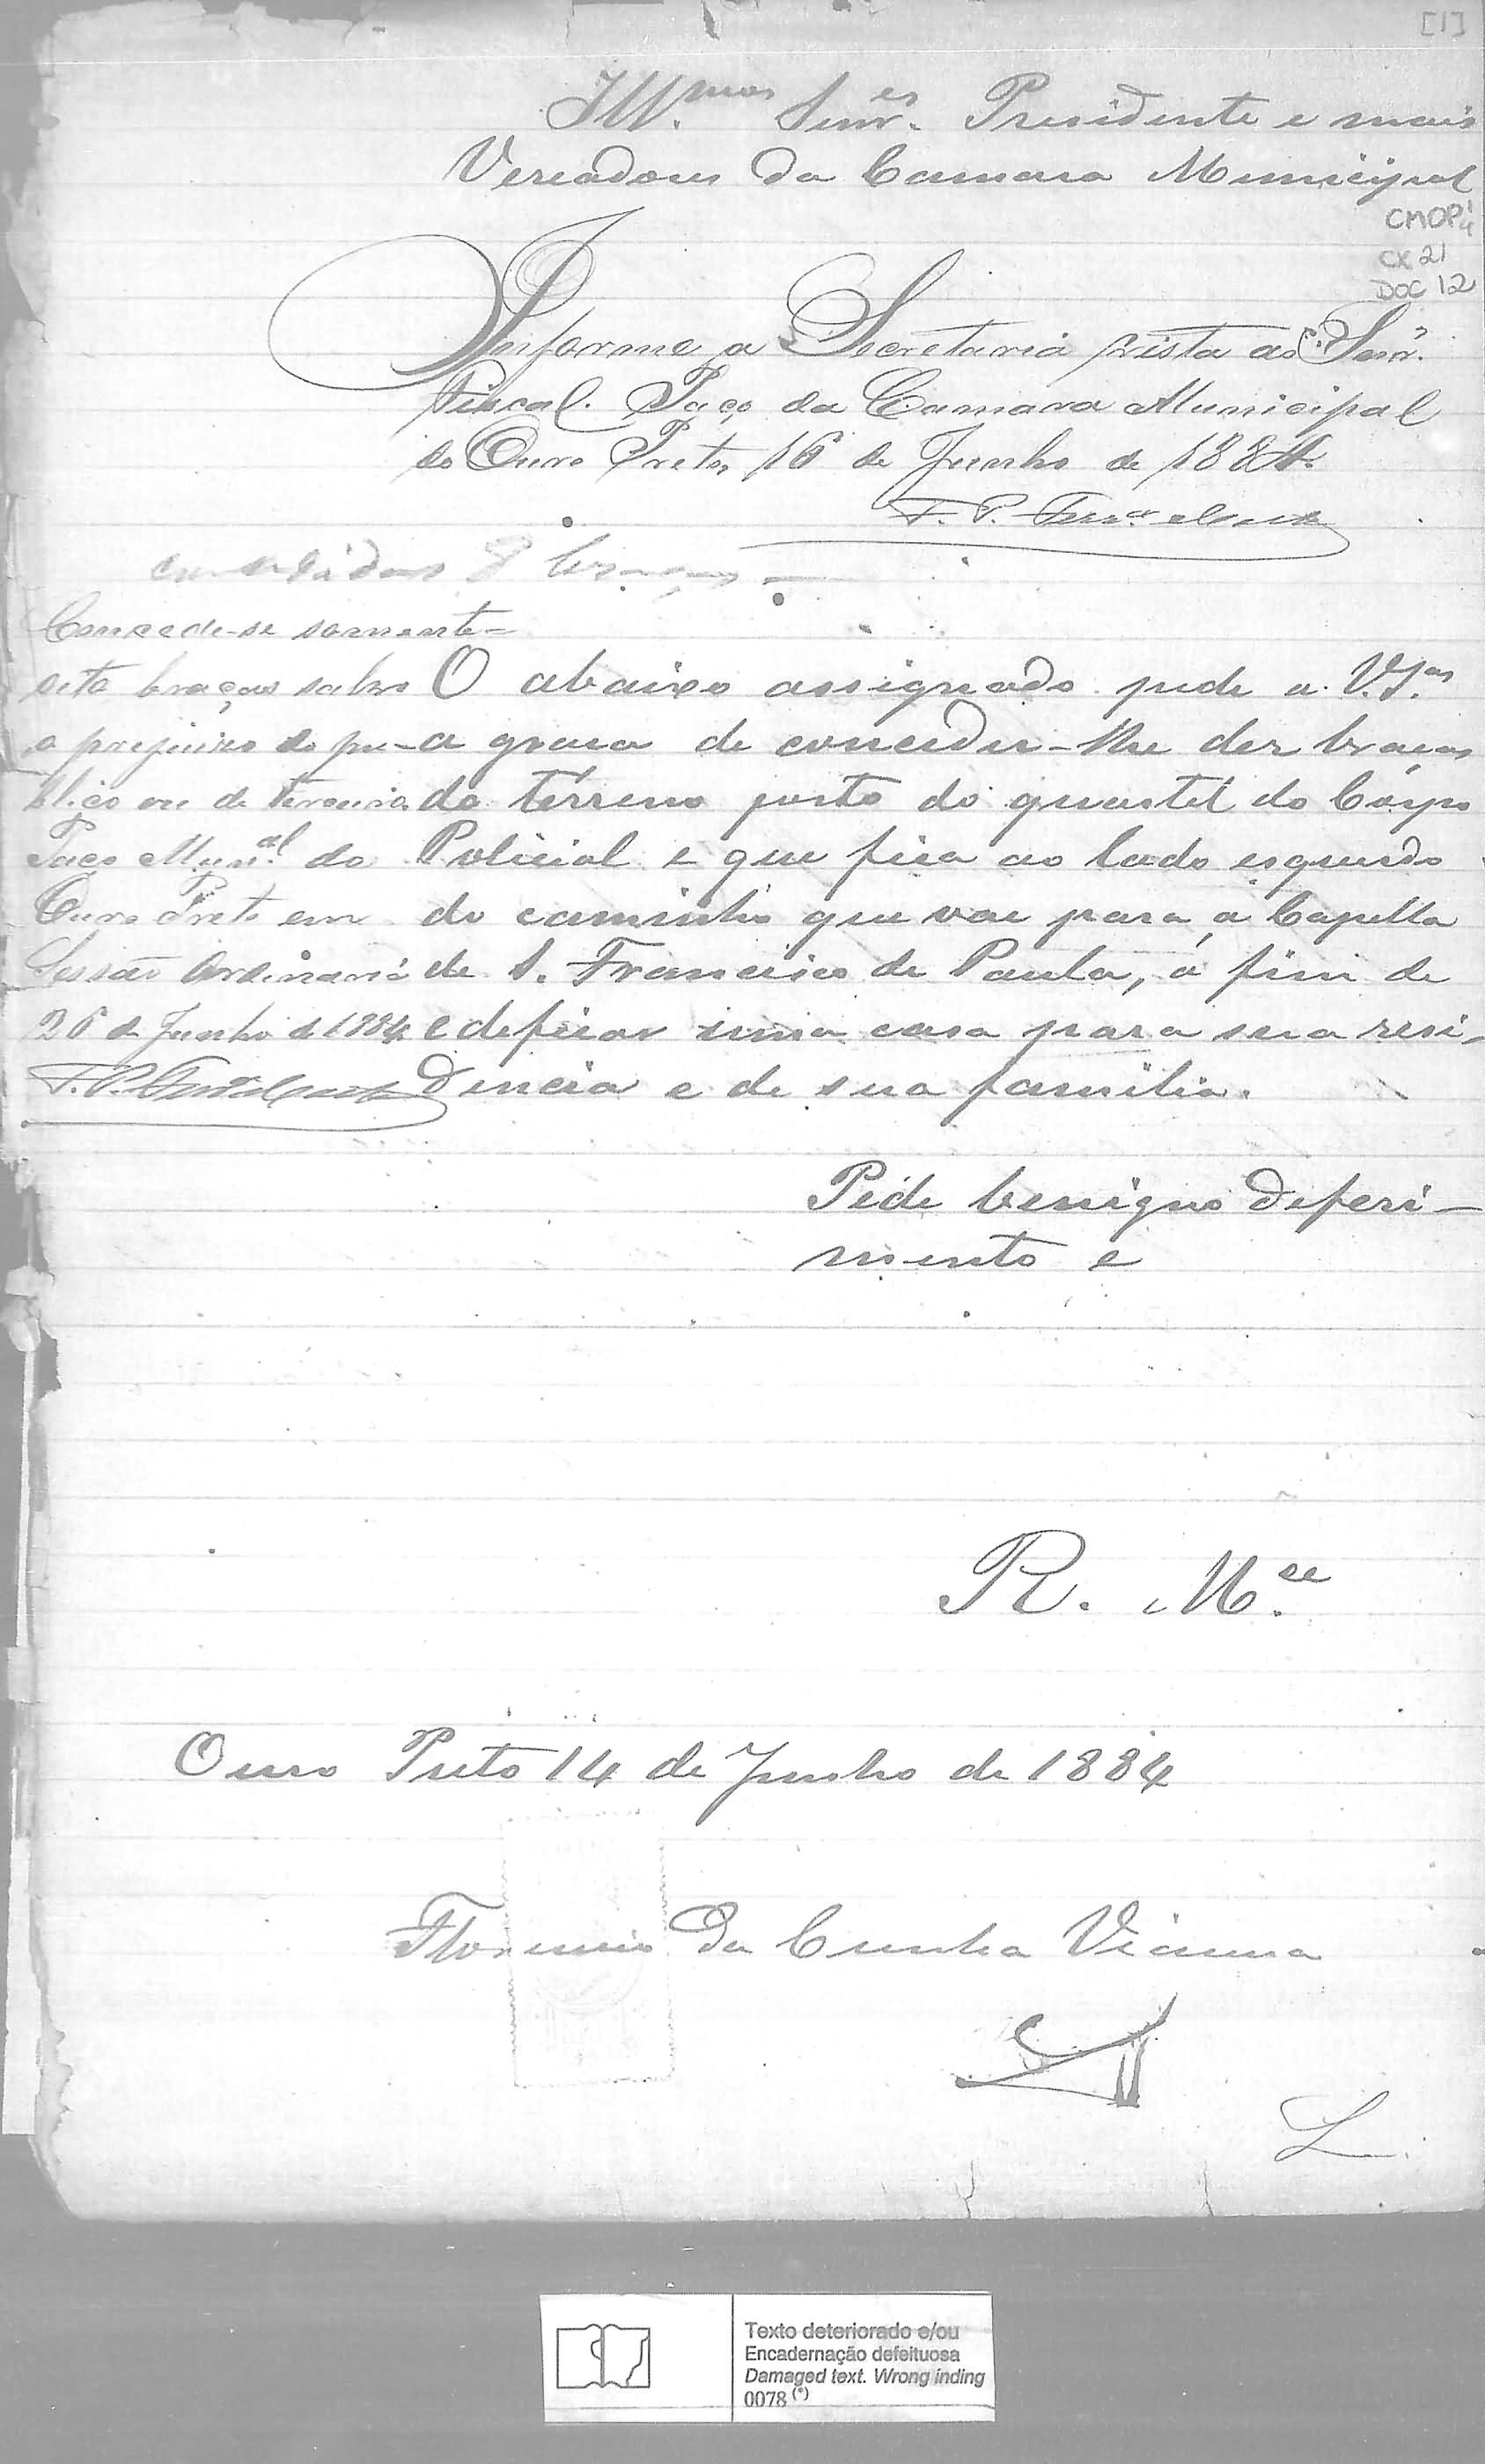 [1]
Ill.mos Senr.es Presidente e mais
Vereadores da Camara Municipal
CMOP 1/4
CX 21
DOC 12
Informe a Secretaria vista ao Senr.
Fiscal. Paço da Camara Municipal
do Ouro Preto, 16 de Junho de 1884.
concedidas 8 braças
Concede-se somente
oito braças salvo
o prejuizo do pu-
blico ou de terceiro.
Paço Mun.al do
Ouro Preto em
Sessão Ordinaria
26 de Junho de 1884
O abaixo assignado pede a V.Sas
a graça de conceder-lhe dez braças
do térreno perto do quartel do Corpo
Policial e que fica ao lado esquerdo
do caminho que vae para a Capella
de S. Francisco de Paula, á fim de
edeficar uma casa para sua resi-
dencia e de sua familia.
Pede benigno deferi-
mento e
R. M.ce
Ouro Preto 14 de Junho de 1884
Florencio da Cunha Vianna
Texto deteriorado e/ou
Encadernação defeituosa
Damaged text. Wrong inding
0078 (*)